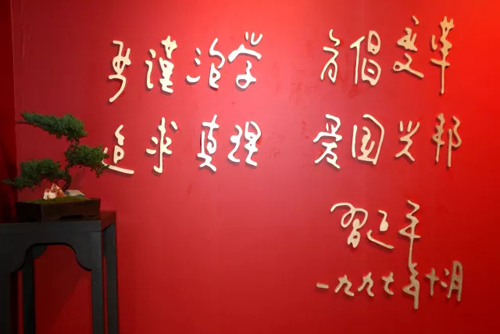 严谨治学 首倡变革
追求真理 爱国兴邦
習近平
一九九七年十月